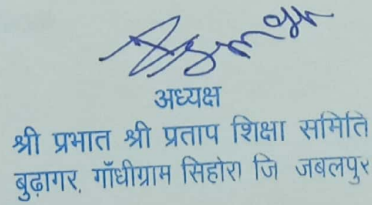 अध्यक्ष
श्री प्रभात श्री प्रताप शिक्षा समिति
बुढ़ागर, गाँधीग्राम सिहोरा जि जबलपुर